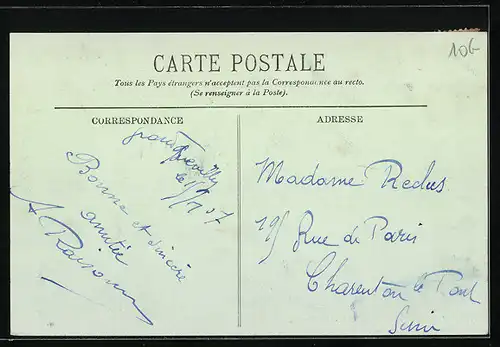 106
CARTE POSTALE
Tous les Pays étrangers n'acceptent pas la Correspondance au recto.
(Se renseigner à la Poste).
CORRESPONDANCE
ADRESSE
le 1/1 07
Bonne et sincère
amitié
A
Madame Reclus
19 Rue de Paris
Charenton le Pont
Seine